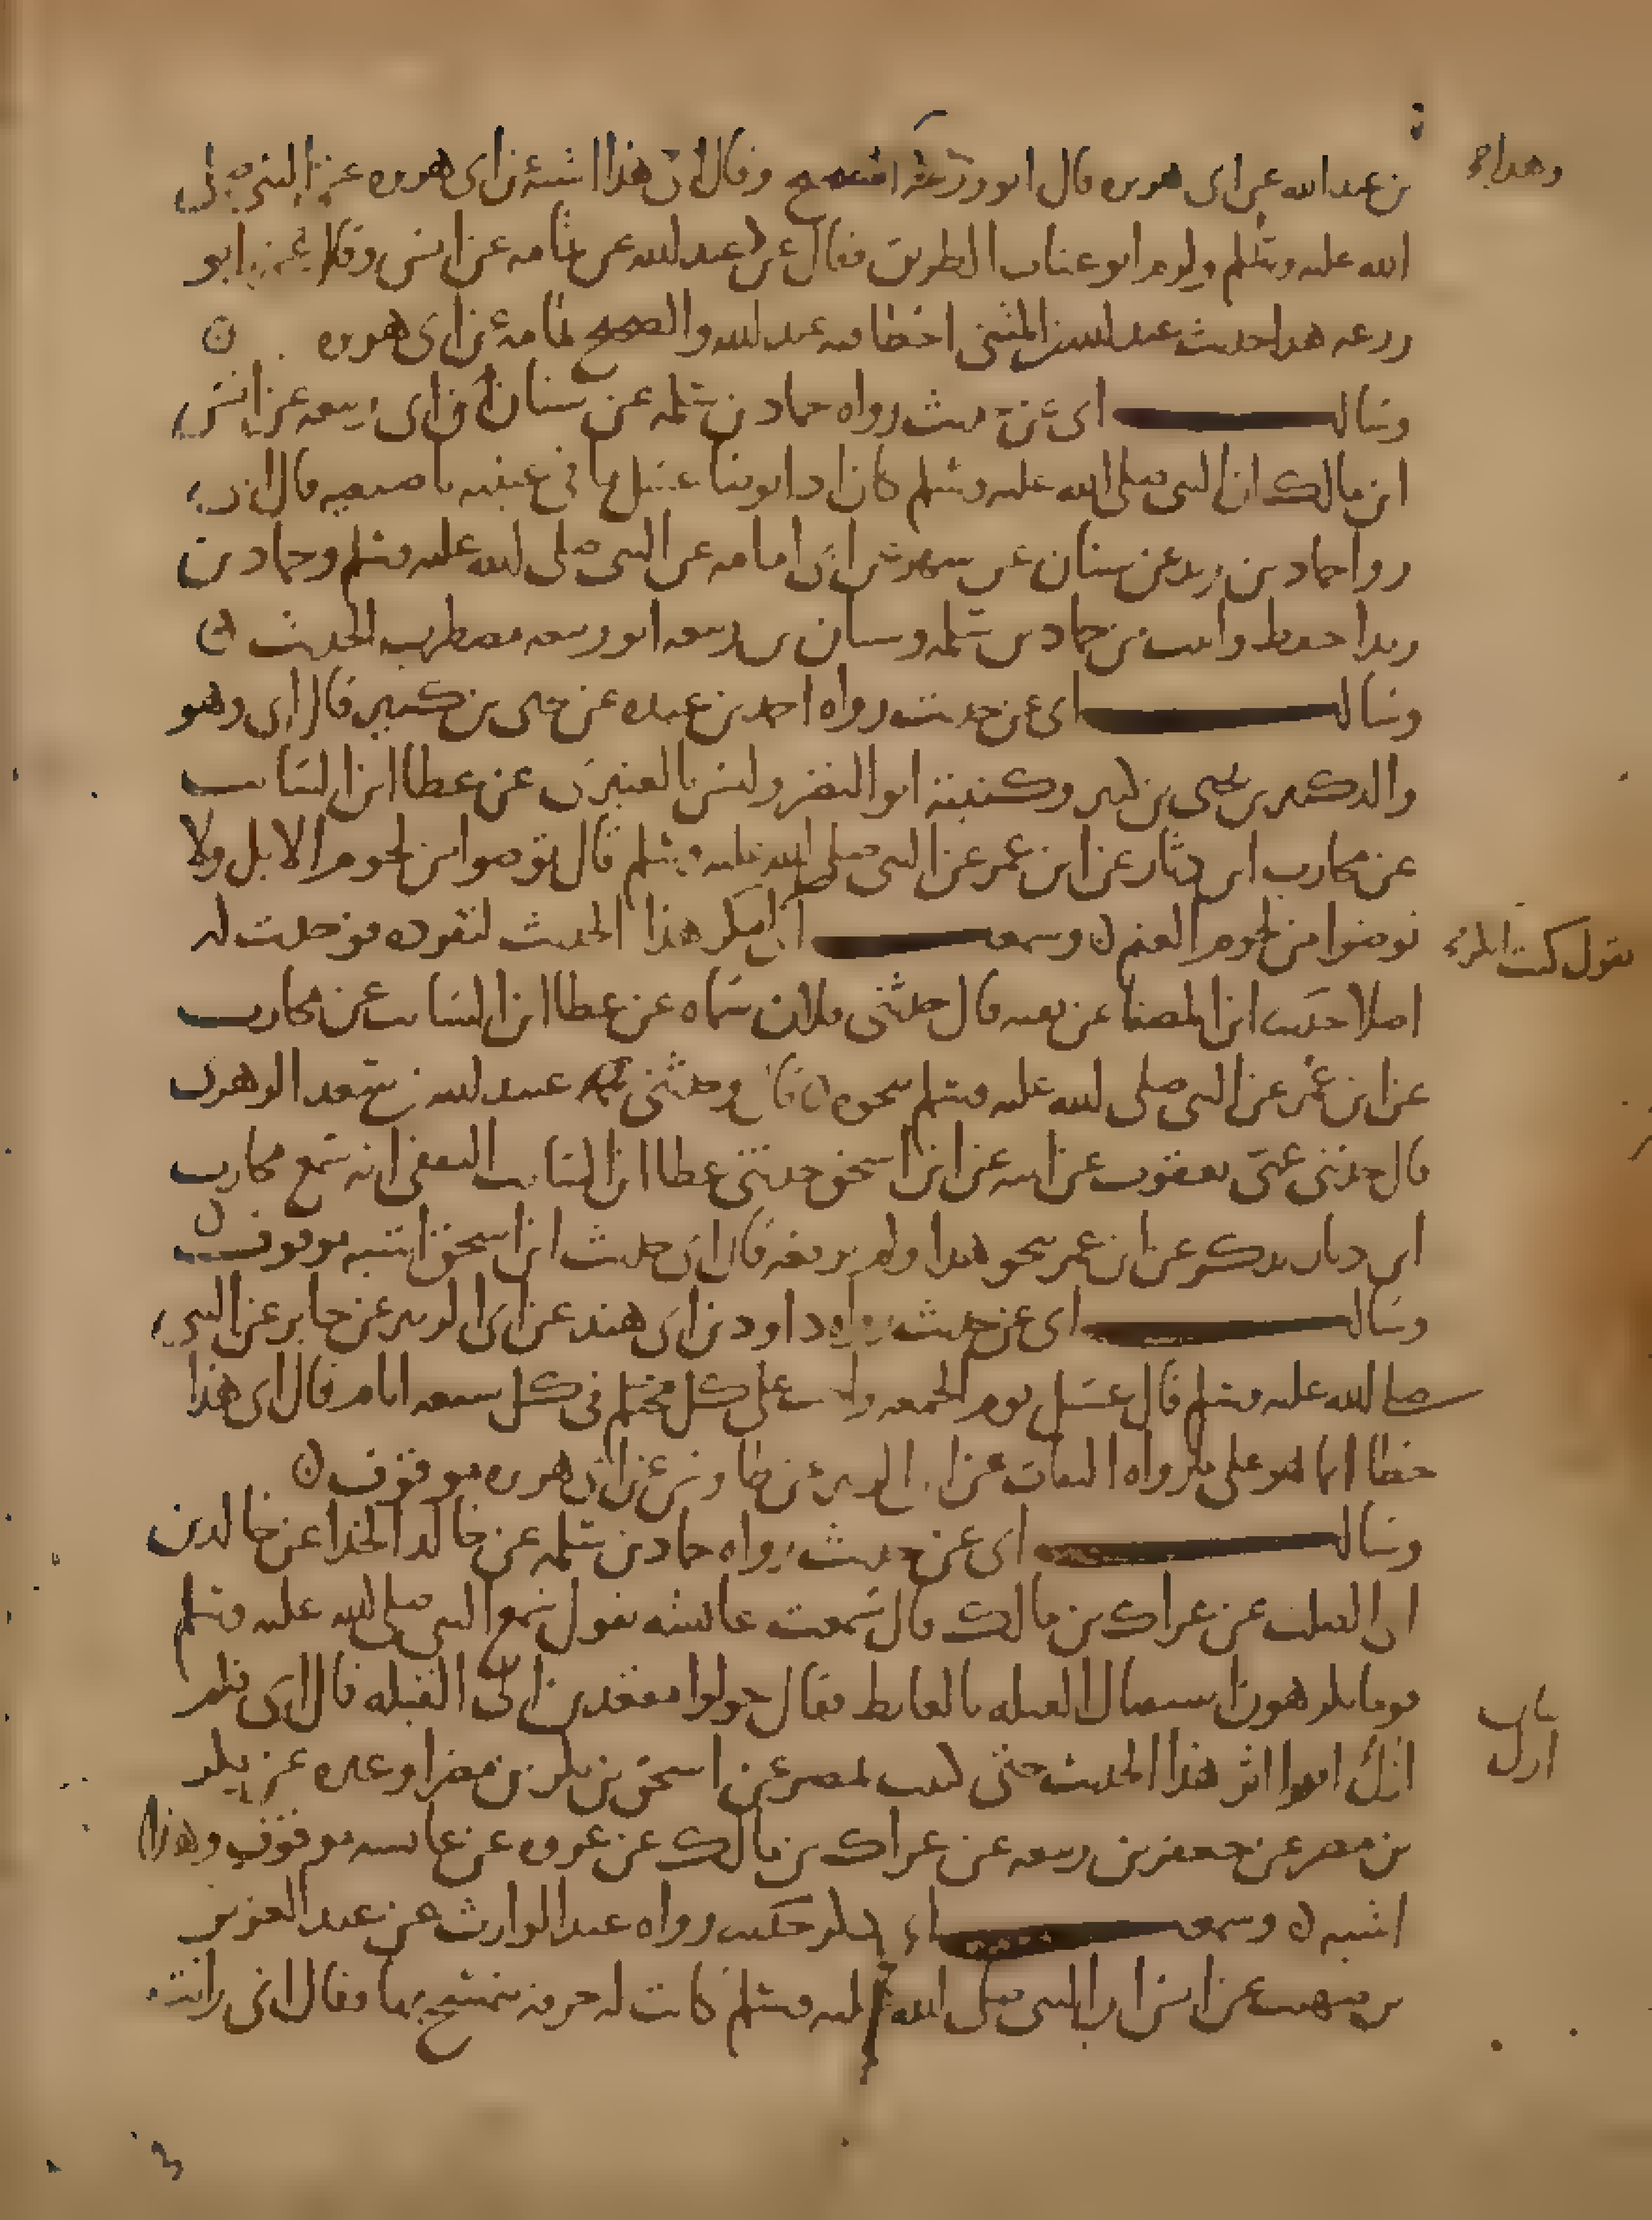 بن عبد الله عن ابى هريره قال ابو زرعه الصحيح وقال ابى هذا اشبه عن ابى هريره عن النبى صلى
الله عليه وسلم ولزم ابو عتاب الطريق فقال عن عبد الله عن ثمامه عن انس وقال ابو
زرعه هذا حديث عبد الله بن المثنى اخطا فيه عبد الله والصحيح ثمامه عن ابى هريره
وسالـــت ابى عن حديث رواه حماد بن سلمه عن سنان بن ابى ربيعه عن انس
ابن مالك ان النبى صلى الله عليه وسلم كان اذا توضا غسل ما فى عينيه باصبعيه قال ابى
روا حماد بن زيد عن سنان عن شهر عن ابى امامه عن النبى صلى الله عليه وسلم وحماد بن
زيد احفظ واثبت من حماد بن سلمه وسنان بن ربيعه ابو ربيعه مضطرب الحديث
وسالـــت ابى عن حديث رواه احمد بن عبده عن يحيى بن كثير قال ابى وهو
والد كثير بن يحيى بن كثير وكنيته ابو النضر وليس بالعنبرى عن عطا ابن السايب
عن محارب ابن دثار عن ابن عمر عن النبى صلى الله عليه وسلم قال توضوا من لحوم الابل ولا
توضوا من لحوم الغنم وسمعـــت ابى ينكر هذا الحديث لتفرده فوجدت له
اصلا حدثنا ابن المصفا عن بقيه قال حدثنى فلان سماه عن عطا ابن السايب عن محارب
عن ابن عمر عن النبى صلى الله عليه وسلم بنحوه قال وحدثنى عبيد الله بن سعد الزهرى
قال حدثنى عمى يعقوب عن ابيه عن ابن اسحق حدثنى عطا ابن السايب الثقفى انه سمع محارب
ابن دثار يذكر عن ابن عمر بنحو هذا ولم يرفعه قال ابى حديث ابن اسحق اشبه موقوف
وسالـــت ابى عن حديث رواه داود بن ابى هند عن ابى الزبير عن جابر عن النبى
صلى الله عليه وسلم قال غسل يوم الجمعه واجب على كل محتلم فى كل سبعه ايام قال ابى هذا
خطا انما هو على ما رواه الثقات عن ابى الزبير عن طاوس عن ابى هريره موقوف
وسالـــت ابى عن حديث رواه حماد بن سلمه عن خالد الحذا عن خالد بن
ابى الصلت عن عراك بن مالك قال سمعت عايشه تقول سمع النبى صلى الله عليه وسلم
قوما يكرهون استقبال القبله بالغايط فقال حولوا مقعدتى الى القبله قال ابى فلم
ازل اقفوا اثر هذا الحديث حتى كتبت بمصر عن اسحق بن بكر بن مضر او غيره عن بكر
بن مضر عن جعفر بن ربيعه عن عراك بن مالك عن عروه عن عايشه موقوف وهذا
اشبه وسمعـــت ابى وذكر حديث رواه عبد الوارث عن عبد العزيز
بن صهيب عن انس ان النبى صلى الله عليه وسلم كانت له خرقه يتمسح بها فقال انى رايت
يقول كنت انكر
باب
ازل